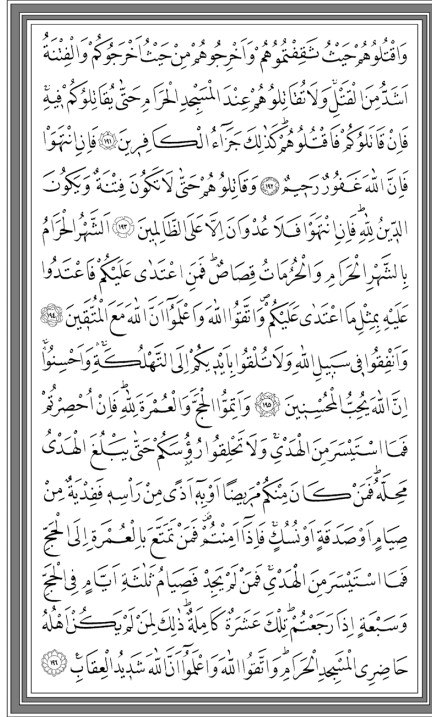 وَاقْتُلُوهُمْ حَيْثُ ثَقِفْتُمُوهُمْ وَاَخْرِجُوهُمْ مِنْ حَيْثُ اَخْرَجُوكُمْ وَالْفِتْنَةُ
اَشَدُّ مِنَ الْقَتْلِۚ وَلَا تُقَاتِلُوهُمْ عِنْدَ الْمَسْجِدِ الْحَرَامِ حَتّٰى يُقَاتِلُوكُمْ فِيهِۚ
فَاِنْ قَاتَلُوكُمْ فَاقْتُلُوهُمْۜ كَذٰلِكَ جَزَٓاءُ الْكَافِرِينَ ﴿١٩١﴾ فَاِنِ انْتَهَوْا
فَاِنَّ اللّٰهَ غَفُورٌ رَحِيمٌ ﴿١٩٢﴾ وَقَاتِلُوهُمْ حَتّٰى لَا تَكُونَ فِتْنَةٌ وَيَكُونَ
الدِّينُ لِلّٰهِۜ فَاِنِ انْتَهَوْا فَلَا عُدْوَانَ اِلَّا عَلَى الظَّالِمِينَ ﴿١٩٣﴾ اَلشَّهْرُ الْحَرَامُ
بِالشَّهْرِ الْحَرَامِ وَالْحُرُمَاتُ قِصَاصٌۜ فَمَنِ اعْتَدٰى عَلَيْكُمْ فَاعْتَدُوا
عَلَيْهِ بِمِثْلِ مَا اعْتَدٰى عَلَيْكُمْۖ وَاتَّقُوا اللّٰهَ وَاعْلَمُٓوا اَنَّ اللّٰهَ مَعَ الْمُتَّقِينَ ﴿١٩٤﴾
وَاَنْفِقُوا فِي سَبِيلِ اللّٰهِ وَلَا تُلْقُوا بِاَيْدِيكُمْ اِلَى التَّهْلُكَةِۚۛ وَاَحْسِنُواۚۛ
اِنَّ اللّٰهَ يُحِبُّ الْمُحْسِنِينَ ﴿١٩٥﴾ وَاَتِمُّوا الْحَجَّ وَالْعُمْرَةَ لِلّٰهِۜ فَاِنْ اُحْصِرْتُمْ
فَمَا اسْتَيْسَرَ مِنَ الْهَدْيِۚ وَلَا تَحْلِقُوا رُؤُ۫سَكُمْ حَتّٰى يَبْلُغَ الْهَدْيُ
مَحِلَّهُۜ فَمَنْ كَانَ مِنْكُمْ مَرِيضًا اَوْ بِهِٓ اَذًى مِنْ رَأْسِهِ فَفِدْيَةٌ مِنْ
صِيَامٍ اَوْ صَدَقَةٍ اَوْ نُسُكٍۚ فَاِذَٓا اَمِنْتُمْ۠ فَمَنْ تَمَتَّعَ بِالْعُمْرَةِ اِلَى الْحَجِّ
فَمَا اسْتَيْسَرَ مِنَ الْهَدْيِۚ فَمَنْ لَمْ يَجِدْ فَصِيَامُ ثَلٰثَةِ اَيَّامٍ فِي الْحَجِّ
وَسَبْعَةٍ اِذَا رَجَعْتُمْۜ تِلْكَ عَشَرَةٌ كَامِلَةٌۜ ذٰلِكَ لِمَنْ لَمْ يَكُنْ اَهْلُهُ
حَاضِرِي الْمَسْجِدِ الْحَرَامِۜ وَاتَّقُوا اللّٰهَ وَاعْلَمُٓوا اَنَّ اللّٰهَ شَدِيدُ الْعِقَابِ۟ ﴿١٩٦﴾